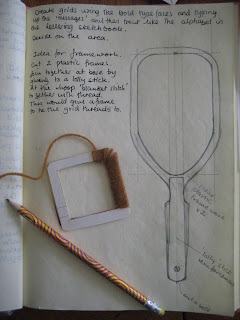 Create grids using the bold typefaces and typing
up the messages and then treat like the alphabet in
the lettering sketch book.
decide on the area.
Idea for framework.
Cut 2 plastic frames
Join together at base by
to a lolly stick.
At the whoop blanket stitch
together with thread.
This would give a frame
to tie the grid threads to.
plastic
frame work
x 2
lolly stick